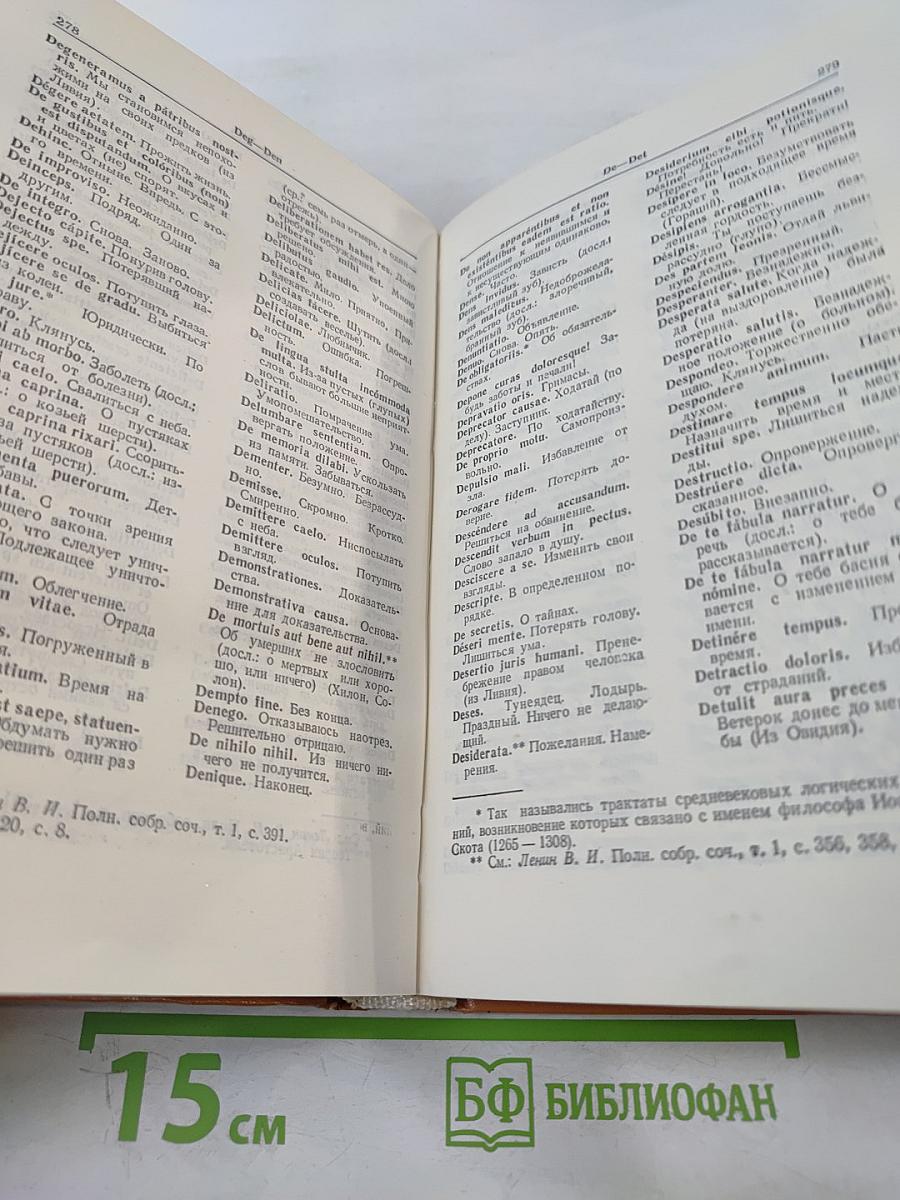 278
Deg—Den
Degeneramus a pátribus nost-
ris. Мы становимся непохо-
жими на своих предков (из
Ливия).
Dégere aetatem. Прожить жизнь.
De gustibus et coloribus (non)
est disputandum. О вкусах и
и цветах (не) спорят.
Dehinc. Отныне. Впредь. С это-
го времени.
De improviso. Неожиданно.
Deinceps. Подряд. Один за
другим.
De íntegro. Снова. Заново.
Dejecto cápite. Понурив голову.
Dejectus spe. Потерявший на-
дежду.
oculos. Потупить глаза.
se de gradu. Выбиться
из колеи.
jure.* Юридически. По
праву.
Клянусь.
ab morbo. Заболеть (досл.:
от болезни).
caelo. Свалиться с неба.
caprina. О пустяках
о козьей шерсти).
caprina rixari. Ссорить-
за пустяков (досл.: из-
шерсти).
puerorum. Дет-
С точки зрения
закона.
что следует унич-
Подлежащее уничто-
Облегчение.
vitae. Отрада
Погруженный в
Время на
saepe, statuen-
нужно
один раз
(ср.: семь раз отмерь, а один—
отрежь).
Deliberationem habet res. Дело
требует обсуждения.
Deliberatus mihi est. Мною
решено.
Delibutus gaudio. Упоенный
радостью.
Delicate. Мило. Приятно. При-
влекательно.
Delicias fácere. Шутить (досл.:
создавать веселье).
Deliciolae. Любимчик.
Delictum. Ошибка. Погреш-
ность.
De lingua stulta incómmoda
multa. Из-за пустых (глупых)
слов бывают большие неприят-
ности.
Deliratio. Помрачение ума.
Умопомешательство.
Delumbare sententiam. Опро-
вергать положение.
De memoria dilabi. Ускользать
из памяти. Забываться.
Dementer. Безумно. Безрассуд-
но.
Demisse. Скромно. Кротко.
Смиренно.
Demittere caelo. Ниспосылать
с неба.
Demittere oculos. Потупить
взгляд.
Demonstrationes. Доказатель-
ства.
Demonstrativa causa. Основа-
ние для доказательства.
De mortuis aut bene aut nihil.**
Об умерших не злословить
(досл.: о мертвых или хоро-
шо, или ничего) (Хилон, Со-
лон).
Dempto fine. Без конца.
Denego. Отказываюсь наотрез.
Решительно отрицаю.
De nihilo nihil. Из ничего ни-
чего не получится.
Denique. Наконец.
В. И. Полн. собр. соч., т. 1, с. 391.
20, с. 8.
279
De—Det
De non apparéntibus et non
existéntibus eadem est ratio.
Отношение к неявившимся и
к несуществующим одинаково.
Dense. Часто.
Dens invidus. Зависть (досл.:
завистливый зуб).
Dens maleditus. Недоброжела-
тельство (досл.: злоречивый,
бранный зуб).
Denuntiatio. Объявление.
Denuo. Снова. Опять.
De obligatoriis.* Об обязатель-
ствах.
Depone curas doloresque! За-
будь заботы и печали!
Depravatio oris. Гримасы.
Deprecator causae. Ходатай (по
делу). Заступник.
Deprecatore. По ходатайству.
De proprio motu. Самопроиз-
вольно.
Depulsio mali. Избавление от
зла.
Derogare fidem. Потерять до-
верие.
Descéndere ad accusandum.
Решиться на обвинение.
Descendit verbum in pectus.
Слово запало в душу.
Desciscere a se. Изменить свои
взгляды.
Descripte. В определенном по-
рядке.
De secretis. О тайнах.
Déseri mente. Потерять голову.
Лишиться ума.
Desertio juris humani. Прене-
брежение правом человека
(из Ливия).
Deses. Тунеядец. Лодырь.
Праздный. Ничего не делаю-
щий.
Desiderata.** Пожелания. Наме-
рения.
Desiderium cibi potionisque.
Потребность есть и пить.
Désine! Довольно! Прекрати!
Перестань!
Desípere in loco. Безумствовать
следует в подходящее время
(Гораций).
Desipiens arrogantia. Бессмыс-
ленная гордость.
Désipis. Ты поступаешь без-
рассудно (глупо).
Des partem leonis. Отдай льви-
ную долю.
Despeciénus. Презренный.
Desperanter. Безнадежно.
Desperata salute. Когда надеж-
да (на выздоровление) была
потеряна.
Desperatio salutis. Безнадеж-
ное положение (о больном).
Despondeo. Торжественно обе-
щаю. Клянусь.
Despondere animum. Пасть
духом.
Destinare tempus locumque.
Назначить время и место.
Destitui spe. Лишиться надеж-
ды.
Destructio. Опровержение.
Destrúere dicta. Опровергать
сказанное.
Desúbito. Внезапно.
De te fábula narratur. О
речь (досл.: о тебе
рассказывается).
De te fábula narratur
nómine. О тебе басня
вается с изменением
имени.
Detinére tempus.
время.
Detractio doloris.
от страданий.
Detulit aura preces
Ветерок донес до
бы (Из Овидия).
* Так назывались трактаты средневековых логических
ний, возникновение которых связано с именем философа
Скота (1265 — 1308).
** См.: Ленин В. И. Полн. собр. соч., т. 1, с. 356, 358,
15 см
БФ БИБЛИОФАН